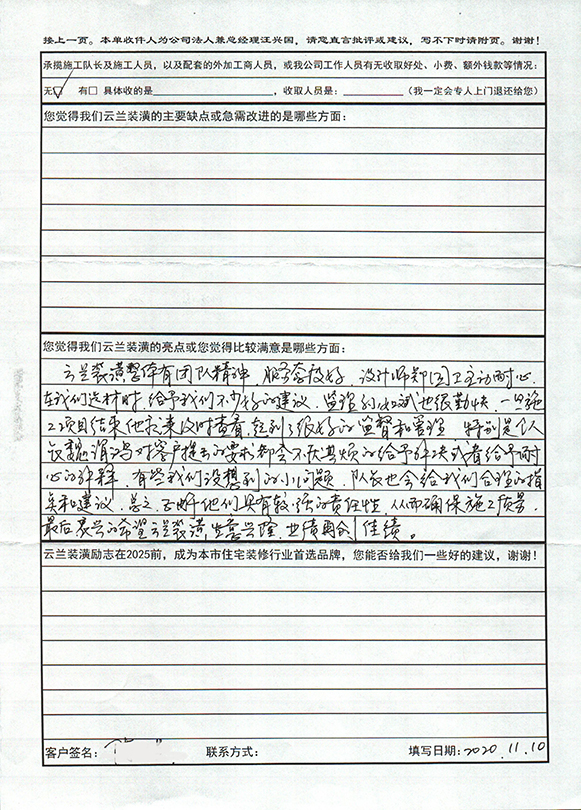 接上一页。本单收件人为公司法人兼总经理汪兴国，请您直言批评或建议，写不下时请附页。谢谢！
承揽施工队长及施工人员，以及配套的外加工商人员，或我公司工作人员有无收取好处、小费、额外钱款等情况：
无☑ 有□ 具体收的是 ，收取人员是： （我一定会专人上门退还给您）
您觉得我们云兰装潢的主要缺点或急需改进的是哪些方面：
您觉得我们云兰装潢的亮点或您觉得比较满意是哪些方面：
云兰装潢整体有团队精神，服务态度好，设计师郑国卫主动耐心，
在我们选材时，给予我们不少好的建议，监理孙 也很勤快，一旦施
工项目结束他都来及时查看，起到了很好的监督和管理，特别是工人
队魏 对客户提出的要求都会不厌其烦的给予解决或者给予耐
心的解释，有些我们没想到的小问题，队长也会给我们合理的指
点和建议，总之，云兰他们具有较强的责任性，从而确保施工质量，
最后衷心的希望云兰装潢，生意兴隆，业绩再创佳绩。
云兰装潢励志在2025前，成为本市住宅装修行业首选品牌，您能否给我们一些好的建议，谢谢！
客户签名： 联系方式： 填写日期：2020.11.10